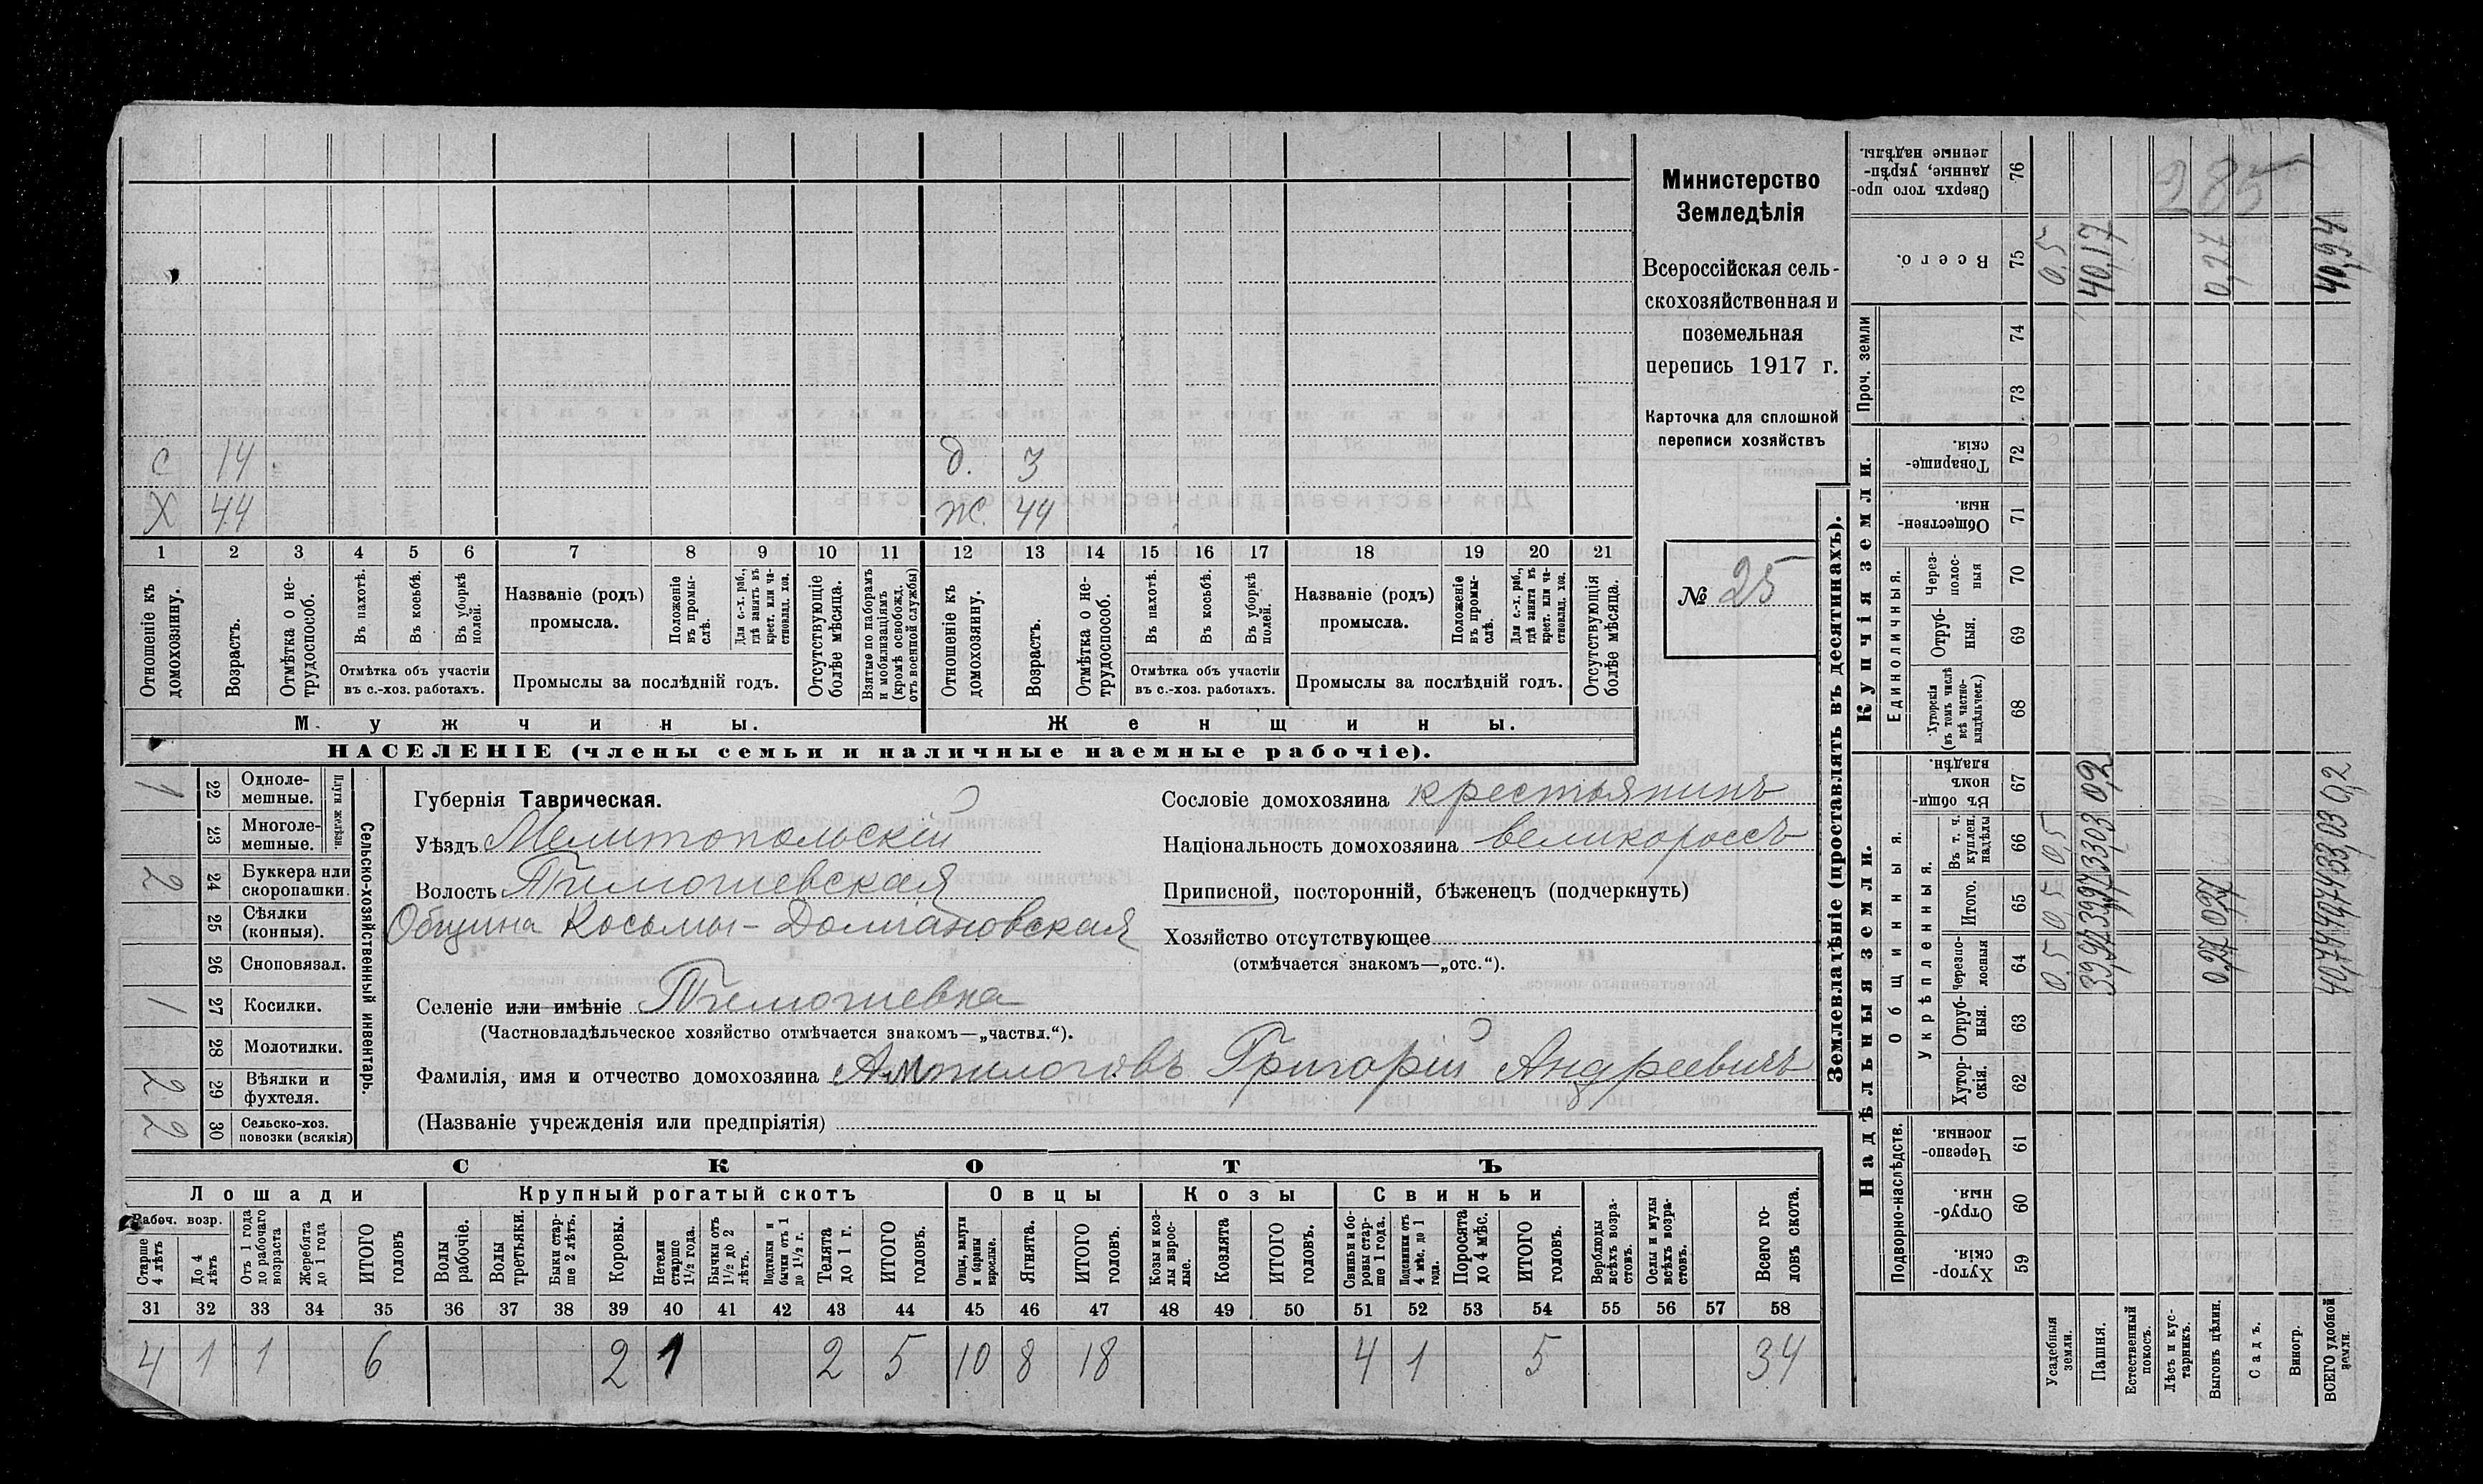 С 14 д. 3
Х 44 ж. 44
1 2 3 4 5 6 7 8 9 10 11 12 13 14 15 16 17 18 19 20 21
Отношеніе къ домохозяину.
Возрастъ.
Отмѣтка о нетрудоспособ.
Въ пахотѣ.
Въ косьбѣ.
Въ уборкѣ полей.
Отмѣтка объ участіи
въ с.-хоз. работахъ.
Названіе (родъ)
промысла.
Положеніе въ промыслѣ.
Для с.-х. раб., гдѣ занятъ въ крест. или частновлад. хоз.
Промыслы за послѣдній годъ.
Отсутствующіе болѣе мѣсяца.
Взятые по наборамъ и мобилизаціямъ (кромѣ освобожд. отъ военной службы)
Отношеніе къ домохозяину.
Возрастъ.
Отмѣтка о нетрудоспособ.
Въ пахотѣ.
Въ косьбѣ.
Въ уборкѣ полей.
Отмѣтка объ участіи
въ с.-хоз. работахъ.
Названіе (родъ)
промысла.
Положеніе въ промыслѣ.
Для с.-х. раб., гдѣ занята въ крест. или частновлад. хоз.
Промыслы за послѣдній годъ.
Отсутствующія болѣе мѣсяца.
Мужчины.
Женщины.
НАСЕЛЕНІЕ (члены семьи и наличные наемные рабочіе).
Министерство
Земледѣлія
Всероссійская сель-
скохозяйственная и
поземельная
перепись 1917 г.
Карточка для сплошной
переписи хозяйствъ
№ 25
Сельско-хозяйственный инвентарь.
Плуги желѣзн.
1 22 Одноле-
мешные.
23 Многоле-
мешные.
2 24 Буккера или
скоропашки.
25 Сѣялки
(конныя).
26 Сноповязал.
1 27 Косилки.
28 Молотилки.
2 29 Вѣялки и
фухтеля.
2 30 Сельско-хоз.
повозки (всякія)
Губернія Таврическая.
Уѣздъ Мелитопольскій
Волость Тимошевская
Община Косьмы-Долмановская
Селеніе или имѣніе Тимошевка
(Частновладѣльческое хозяйство отмѣчается знакомъ—„частвл.“).
Фамилія, имя и отчество домохозяина Ампилоговъ Григорій Андреевичъ
(Названіе учрежденія или предпріятія)
Сословіе домохозяина крестьянинъ
Національность домохозяина великороссъ
Приписной, посторонній, бѣженецъ (подчеркнуть)
Хозяйство отсутствующее
(отмѣчается знакомъ—„отс.“).
СКОТЪ
Лошади Крупный рогатый скотъ Овцы Козы Свиньи
Рабоч. возр.
Старше 4 лѣтъ
До 4 лѣтъ
Отъ 1 года до рабочаго возраста
Жеребята до 1 года
ИТОГО головъ
Волы рабочіе.
Волы третьяки.
Быки старше 2 лѣтъ.
Коровы.
Нетели старше 1½ года.
Бычки отъ 1½ до 2 лѣтъ.
Подтелки и бычки отъ 1 до 1½ г.
Телята до 1 г.
ИТОГО головъ.
Овцы, валухи и бараны взрослые.
Ягнята.
ИТОГО головъ.
Козы и козлы взрослые.
Козлята
ИТОГО головъ.
Свиньи и боровы старше 1 года.
Подсвинки отъ 4 мѣс. до 1 года.
Поросята до 4 мѣс.
ИТОГО головъ.
Верблюды всѣхъ возрастовъ.
Ослы и мулы всѣхъ возрастовъ.
Всего головъ скота.
31 32 33 34 35 36 37 38 39 40 41 42 43 44 45 46 47 48 49 50 51 52 53 54 55 56 57 58
4 1 1 6 2 1 2 5 10 8 18 4 1 5 34
Землевладѣніе (проставлять въ десятинахъ).
Надѣльныя земли.
Купчія земли.
Проч. земли
Подворно-наслѣдств.
Общинныя.
Укрѣпленныя.
Единоличныя.
Сверхъ того проданные, укрѣпленные надѣлы. 76
Всего. 75
74
73
Товарищескія. 72
Общественныя. 71
Черезполосныя 70
Отрубныя. 69
Хуторскія (въ томъ числѣ всѣ частновладѣльческ.) 68
Въ общинномъ владѣн. 67
Въ т. ч. куплен. надѣлы 66
Итого. 65
Черезполосныя 64
Отрубныя. 63
Хуторскія. 62
Черезполосныя. 61
Отрубныя. 60
Хуторскія. 59
285
Усадебныя земли. 0,5 0,5 0,5 0,5
Пашня. 39,97 39,97 33,03 0,2 40,17
Естественный покосъ.
Лѣсъ и кустарникъ.
Выгонъ цѣлин. 0,27 0,27 0,27
Садъ.
Виногр.
ВСЕГО удобной земли. 40,74 40,74 33,03 0,2 40,94